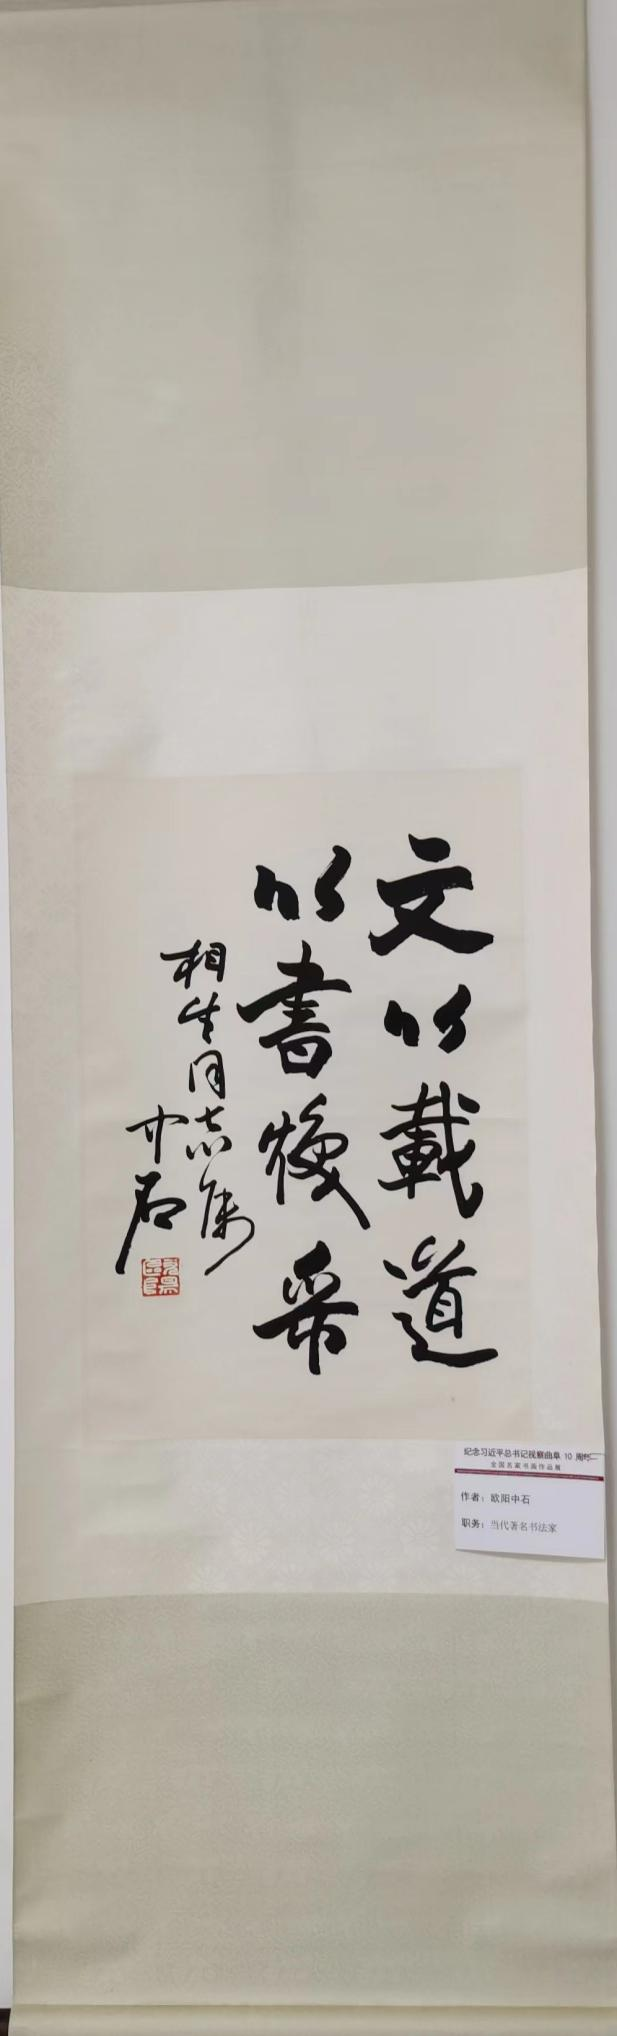 文以載道
以書煥采
相生同志属
中石
纪念习近平总书记视察曲阜 10 周年
全国名家书画作品展
作者：欧阳中石
职务：当代著名书法家